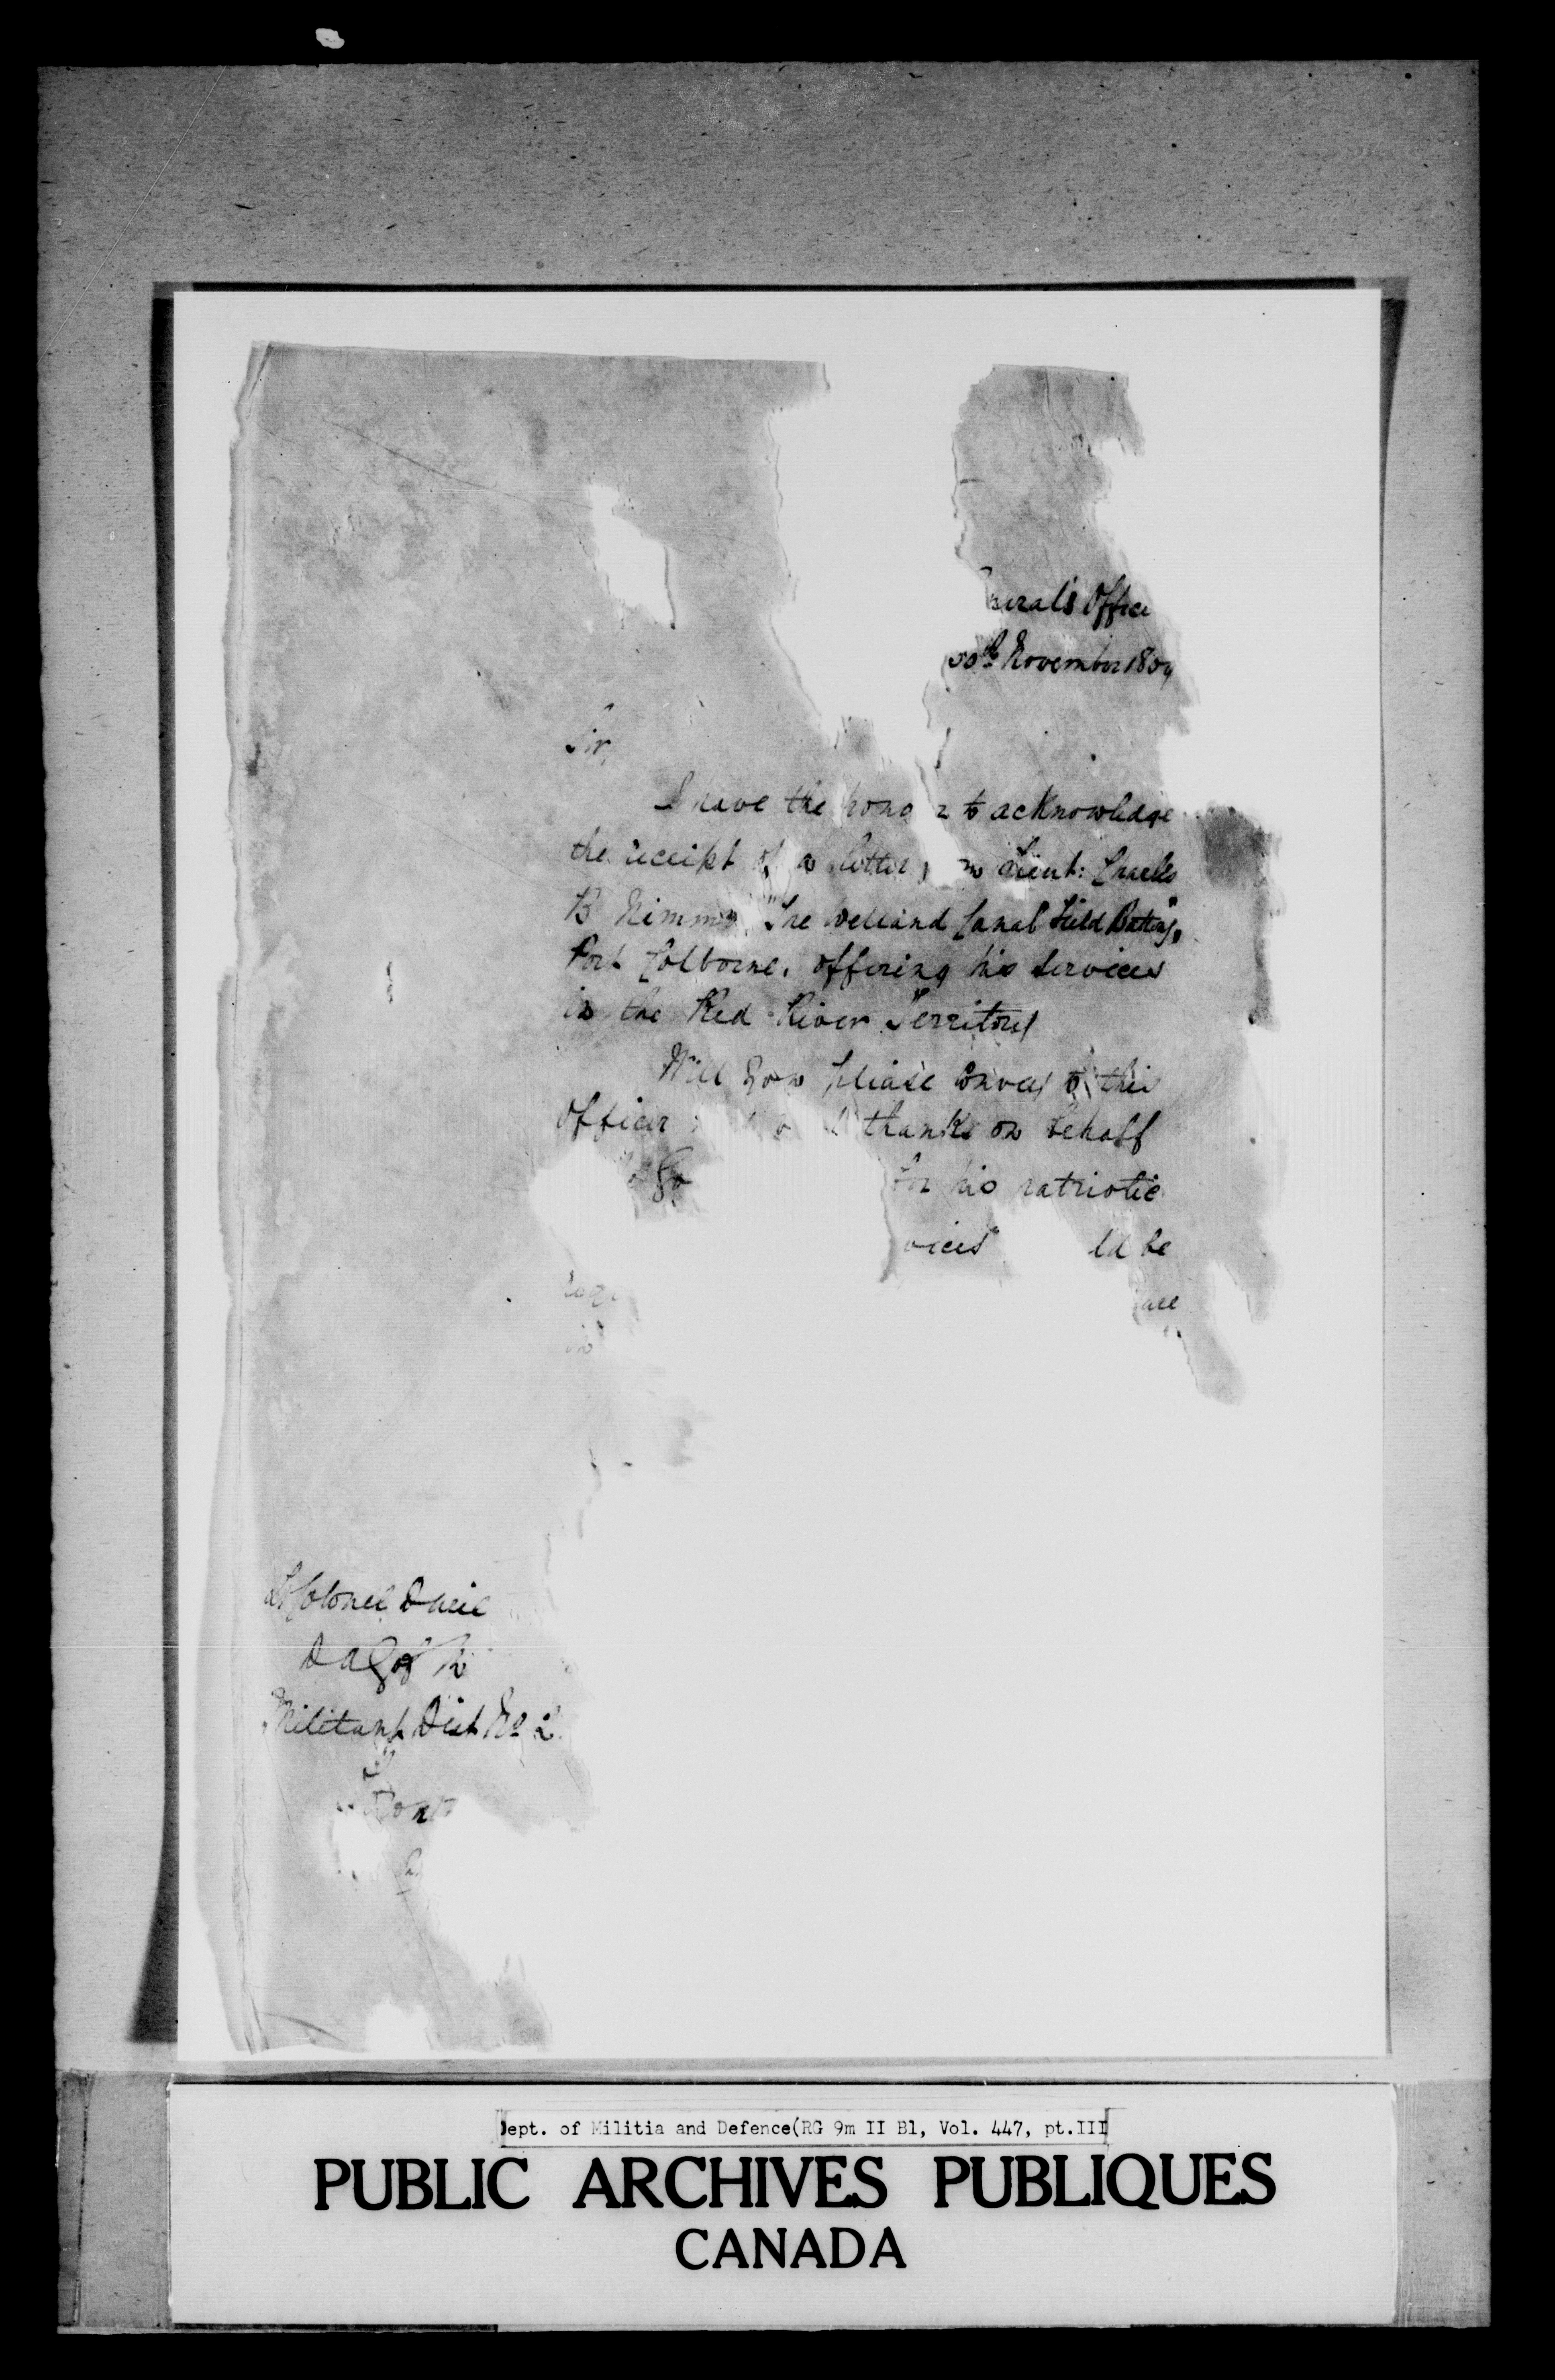 neral's Office
30th November 1869
Sir,
I have the hono r to acknowledge
the receipt of a letter m Lieut: Charles
B Nimmo, "The Welland Canal Field Battery",
Port Colborne, offering his services
in the Red River Territory
Will you please convey to this
Officer thanks on behalf
Go for his patriotic
vices ld be
requ all
in
Lt Colonel Durie
D A G of M
Military Dist No 2
Toront
Dept. of Militia and Defence(RG 9m II B1, Vol. 447, pt.III
PUBLIC ARCHIVES PUBLIQUES
CANADA